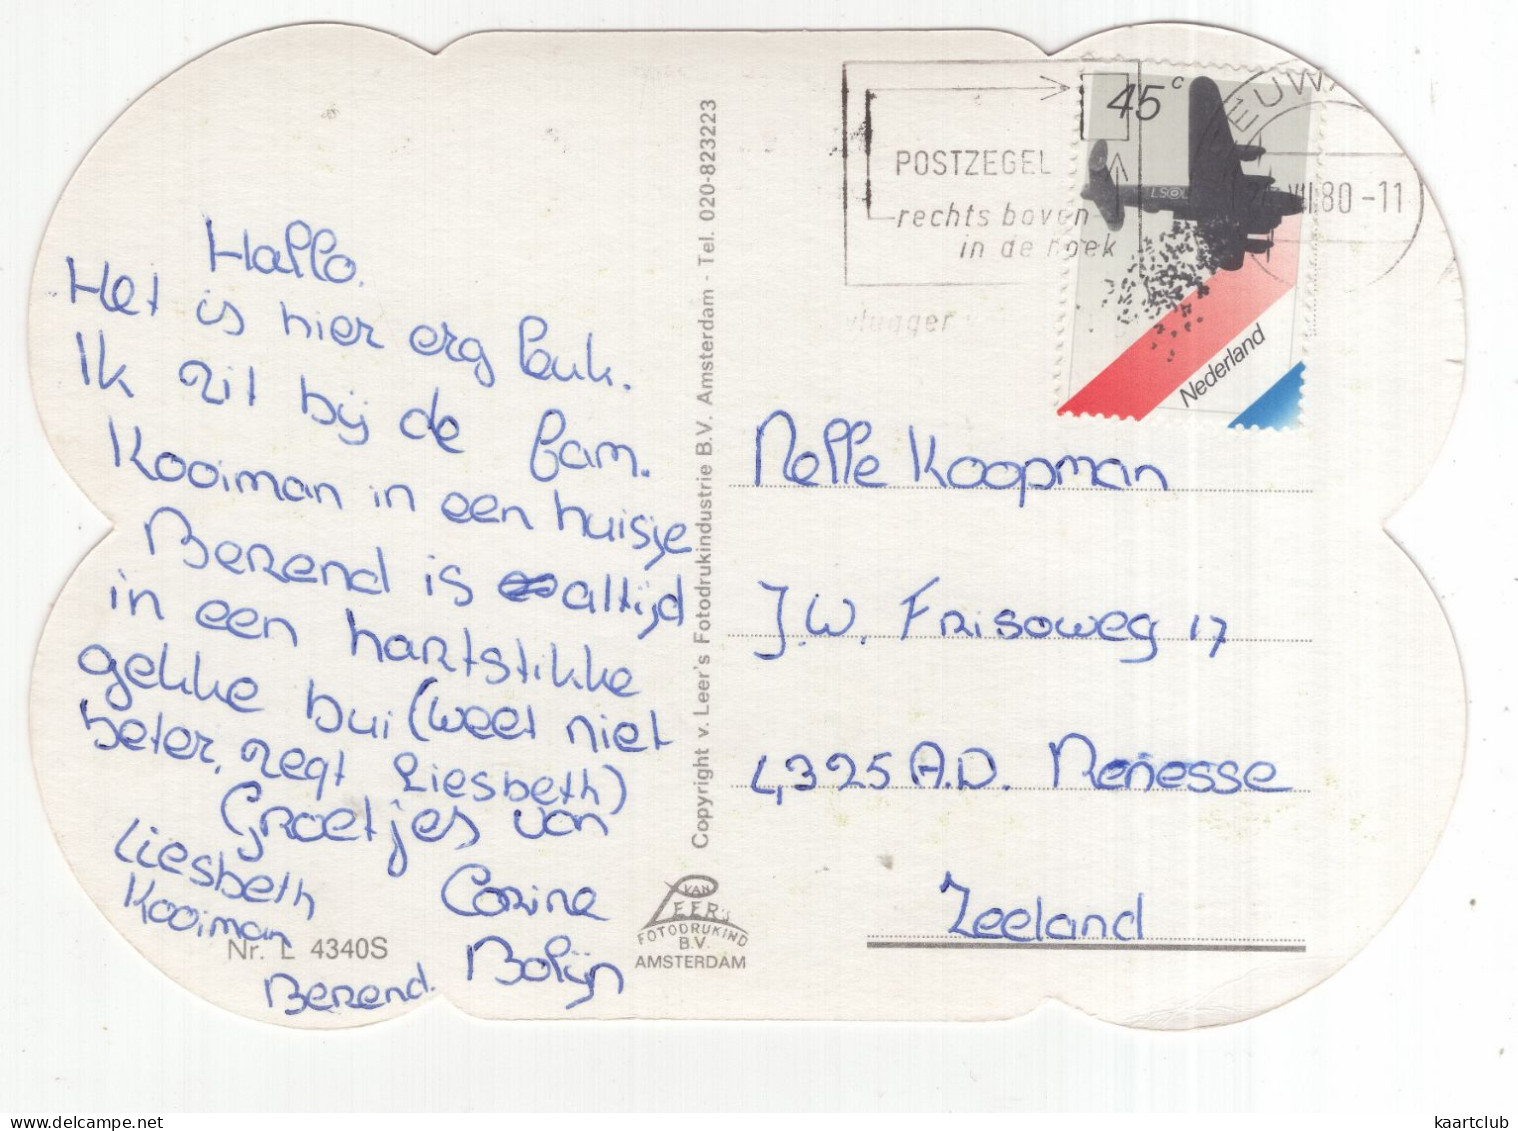 Hallo.
Het is hier erg leuk.
Ik zit bij de fam.
Kooiman in een huisje
Berend is altijd
in een hartstikke
gekke bui (weet niet
beter, zegt Liesbeth)
Groetjes van
Liesbeth
Kooiman
Corine
Bolijn
Berend.
Nr. L 4340S
Copyright v. Leer's Fotodrukindustrie B.V. Amsterdam - Tel. 020-823223
VAN
LEER's
FOTODRUKIND
B.V.
AMSTERDAM
POSTZEGEL
rechts boven
in de hoek
vlugger
45 c
Nederland
EUW
VII 80 -11
Nelle Koopman
J.W. Frisoweg 17
4325 A.D. Renesse
Zeeland
kaartclub